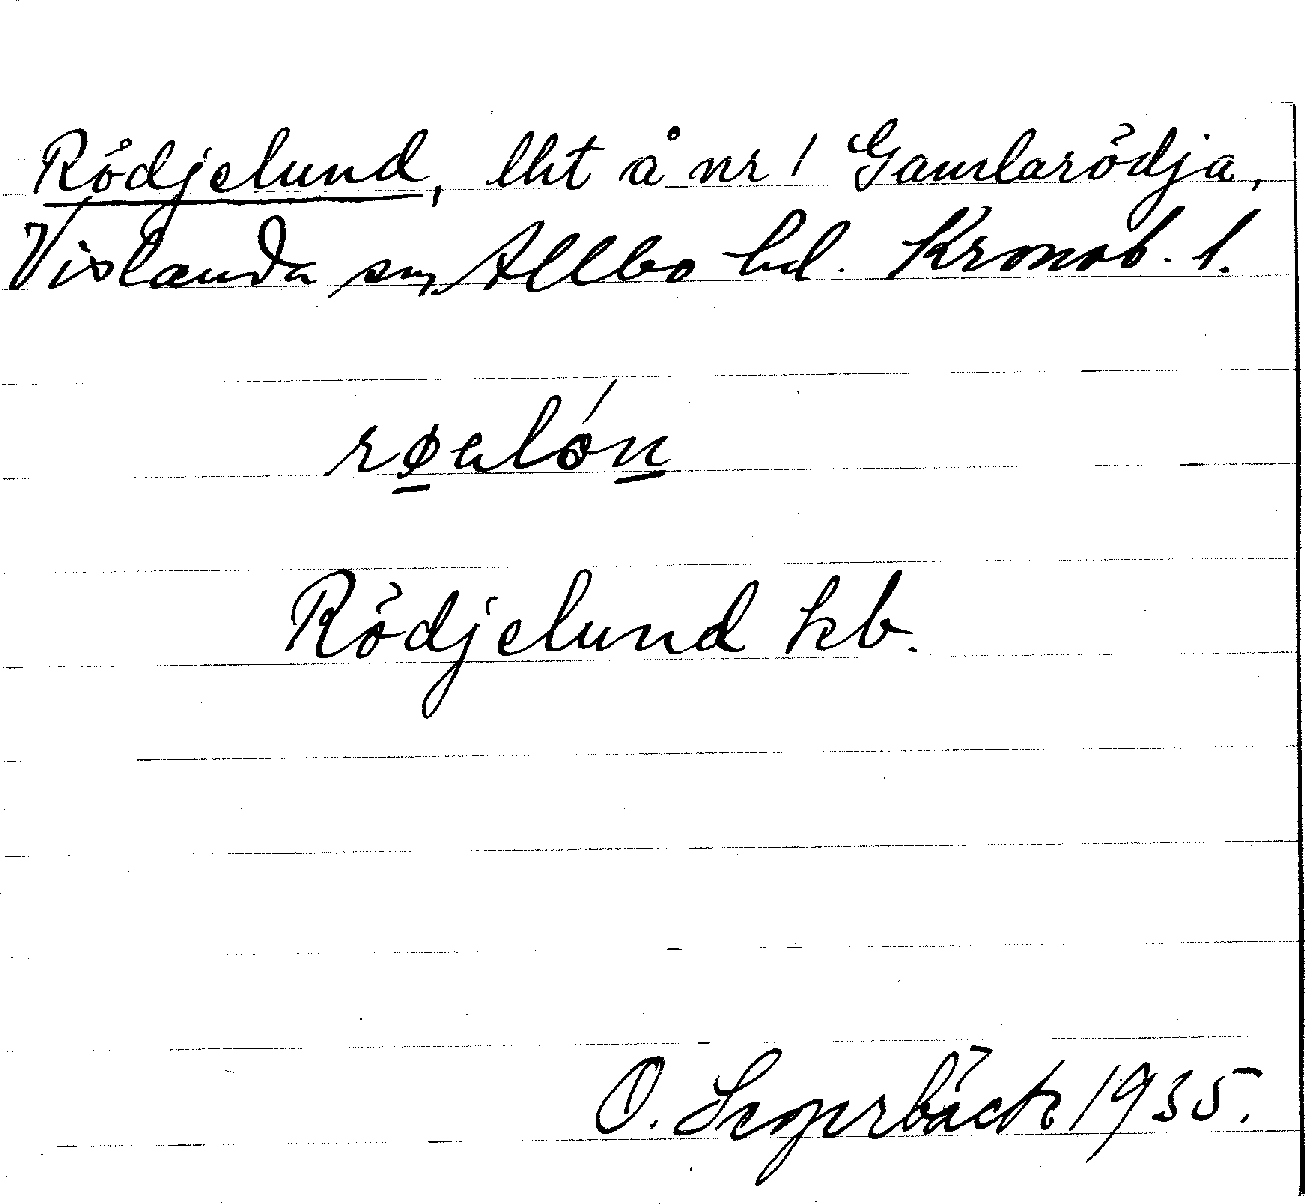 Rödjelund, lht å nr 1 Gamlarödja,
Vislanda sn, Allbo hd. Kronob. l.
Rödjelund kb.
O. Segerbäck 1935.